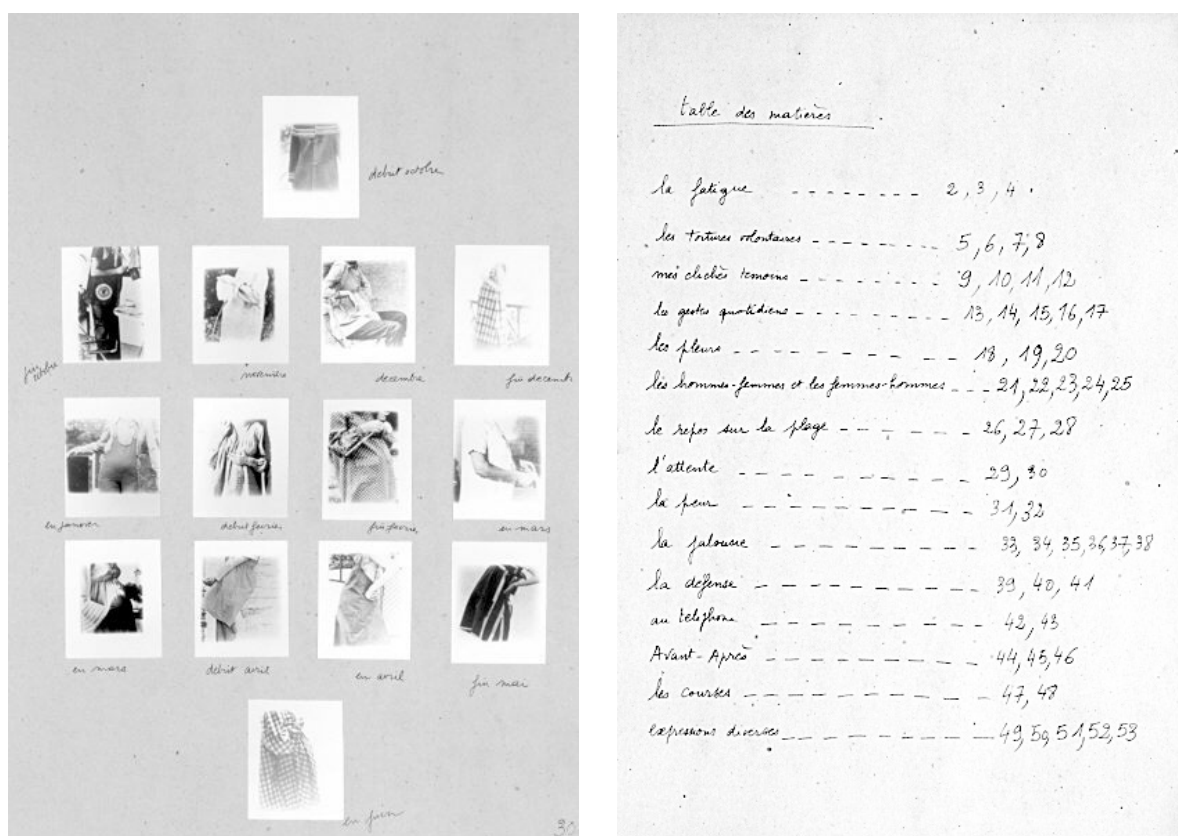 debut octobre
fin octobre
novembre
decembre
fin decemb
en janvier
debut fevrier
fin fevrier
en mars
en mars
debut avril
en avril
fin mai
en juin
30
table des matières
la fatigue -------- 2, 3, 4.
les tortures volontaires --------- 5, 6, 7, 8
mes clichés temoins --------- 9, 10, 11, 12
les gestes quotidiens --------- 13, 14, 15, 16, 17
les pleurs --------- 18, 19, 20
les hommes-femmes et les femmes-hommes --- 21, 22, 23, 24, 25
le repos sur la plage ------ 26, 27, 28
l'attente --------- 29, 30
la peur --------- 31, 32
la jalousie --------- 33, 34, 35, 36, 37, 38
la défense --------- 39, 40, 41
au téléphone --------- 42, 43
Avant-Après --------- 44, 45, 46
les courses --------- 47, 48
expressions diverses --------- 49, 50, 51, 52, 53